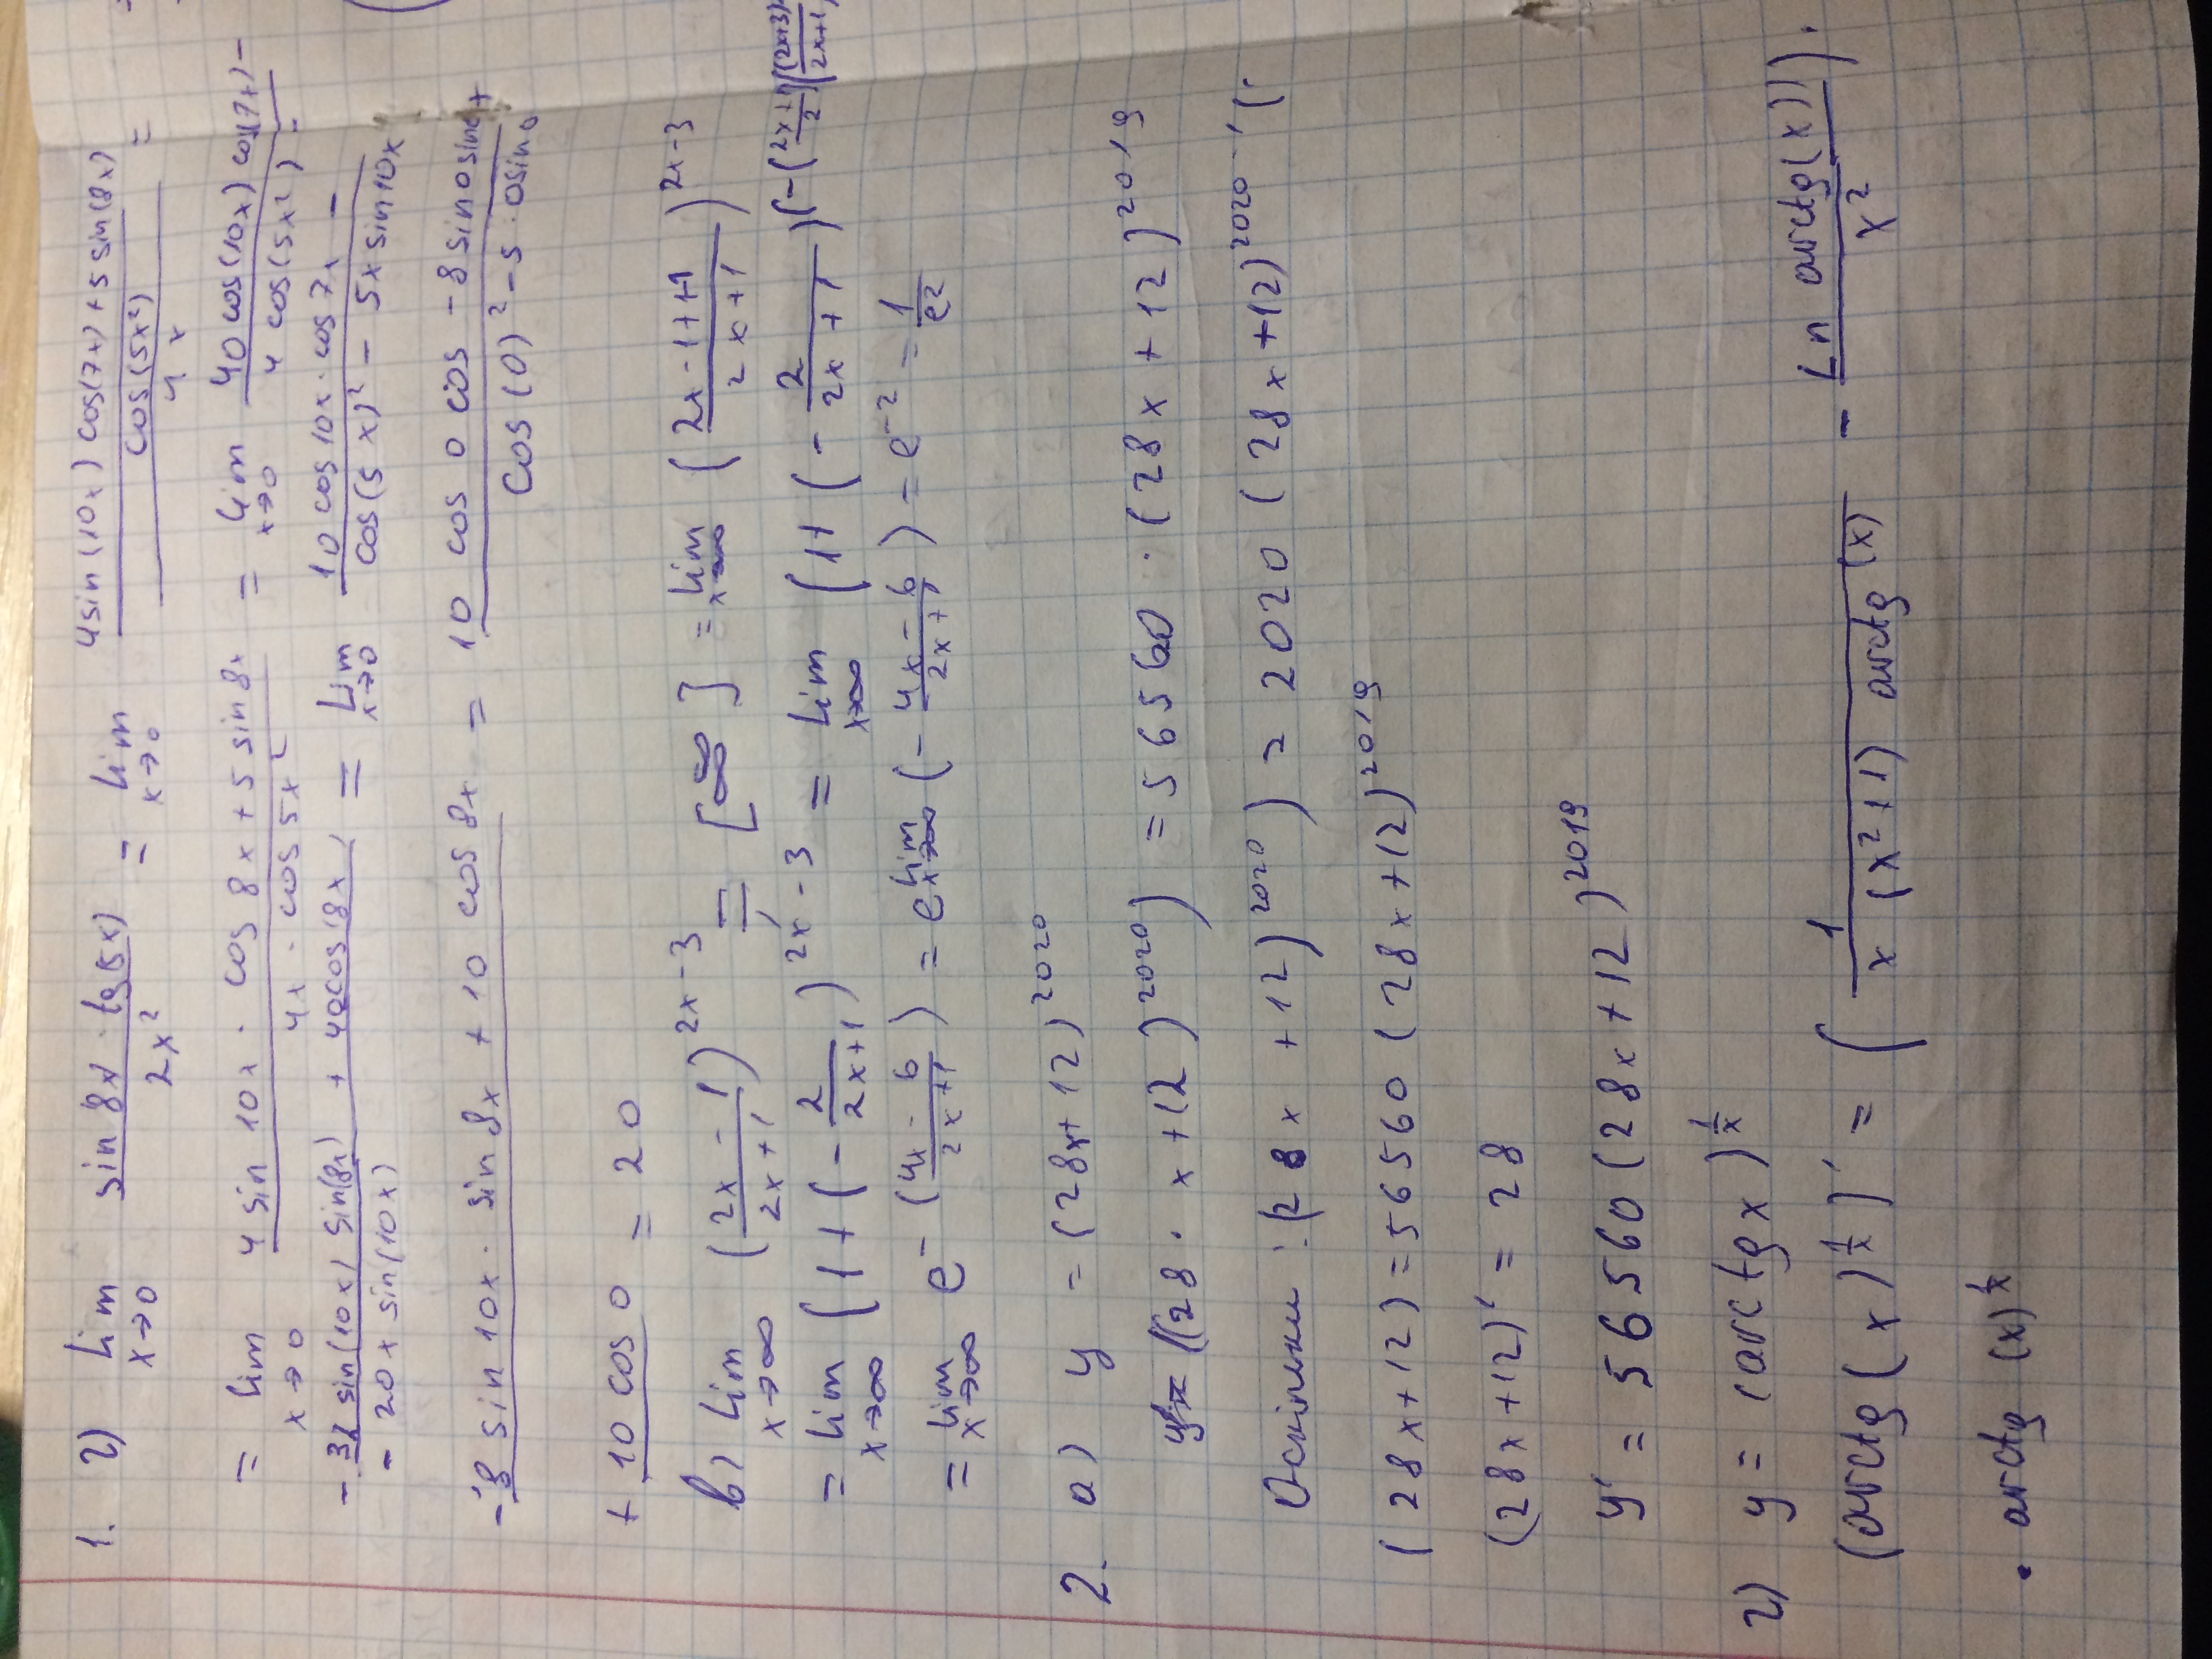 1. г) lim x→0 sin 8x · tg(5x) / 2x² = lim x→0 4sin(10x) cos(7x) + 5 sin(8x) / cos(5x²) / 4x =
= lim x→0 4 sin 10x · cos 8x + 5 sin 8x / 4x · cos 5x² = lim x→0 40 cos(10x) cos(7x) − / 4 cos(5x²) −
− 32 sin(10x) sin(8x) + 40cos(8x) / − 20x sin(10x) = lim x→0 10 cos10x · cos 7x − / cos(5x)² − 5x sin10x
− 8 sin 10x · sin 8x + 10 cos 8x = 10 cos 0 cos − 8 sin0 sin0 + / cos(0)² − 5 · 0sin0
+ 10 cos 0 = 20
в) lim x→∞ (2x − 1 / 2x + 1)^(2x−3) = [∞ / ∞] = lim x→∞ (2x − 1 + 1 / 2x + 1)^(2x−3)
= lim x→∞ (1 + (− 2 / 2x+1)^(2x−3) = lim x→∞ (1 + (− 2 / 2x + 1)^(−(2x+1 / 2)((2x+3) / 2x+1)
= lim x→∞ e^−(4x − 6 / 2x + 1) = e^lim x→∞ (− 4x − 6 / 2x + 1) = e^−2 = 1 / e²
2. а) y = (28x + 12)^2020
y' = ((28 · x + 12)^2020) = 56560 · (28x + 12)^2019
Оскільки : (28x + 12)^2020) = 2020 (28x + 12)^2020 − 1 (
(28x + 12) = 56560 (28x + 12)^2019
(28x + 12)' = 28
y' = 56560 (28x + 12)^2019
г) y = (arctg x)^(1/x)
(arctg (x)^(1/x))' = (1 / x (x² + 1) arctg (x) − Ln arctg(x)) / x²) ·
· arctg (x)^(1/x)